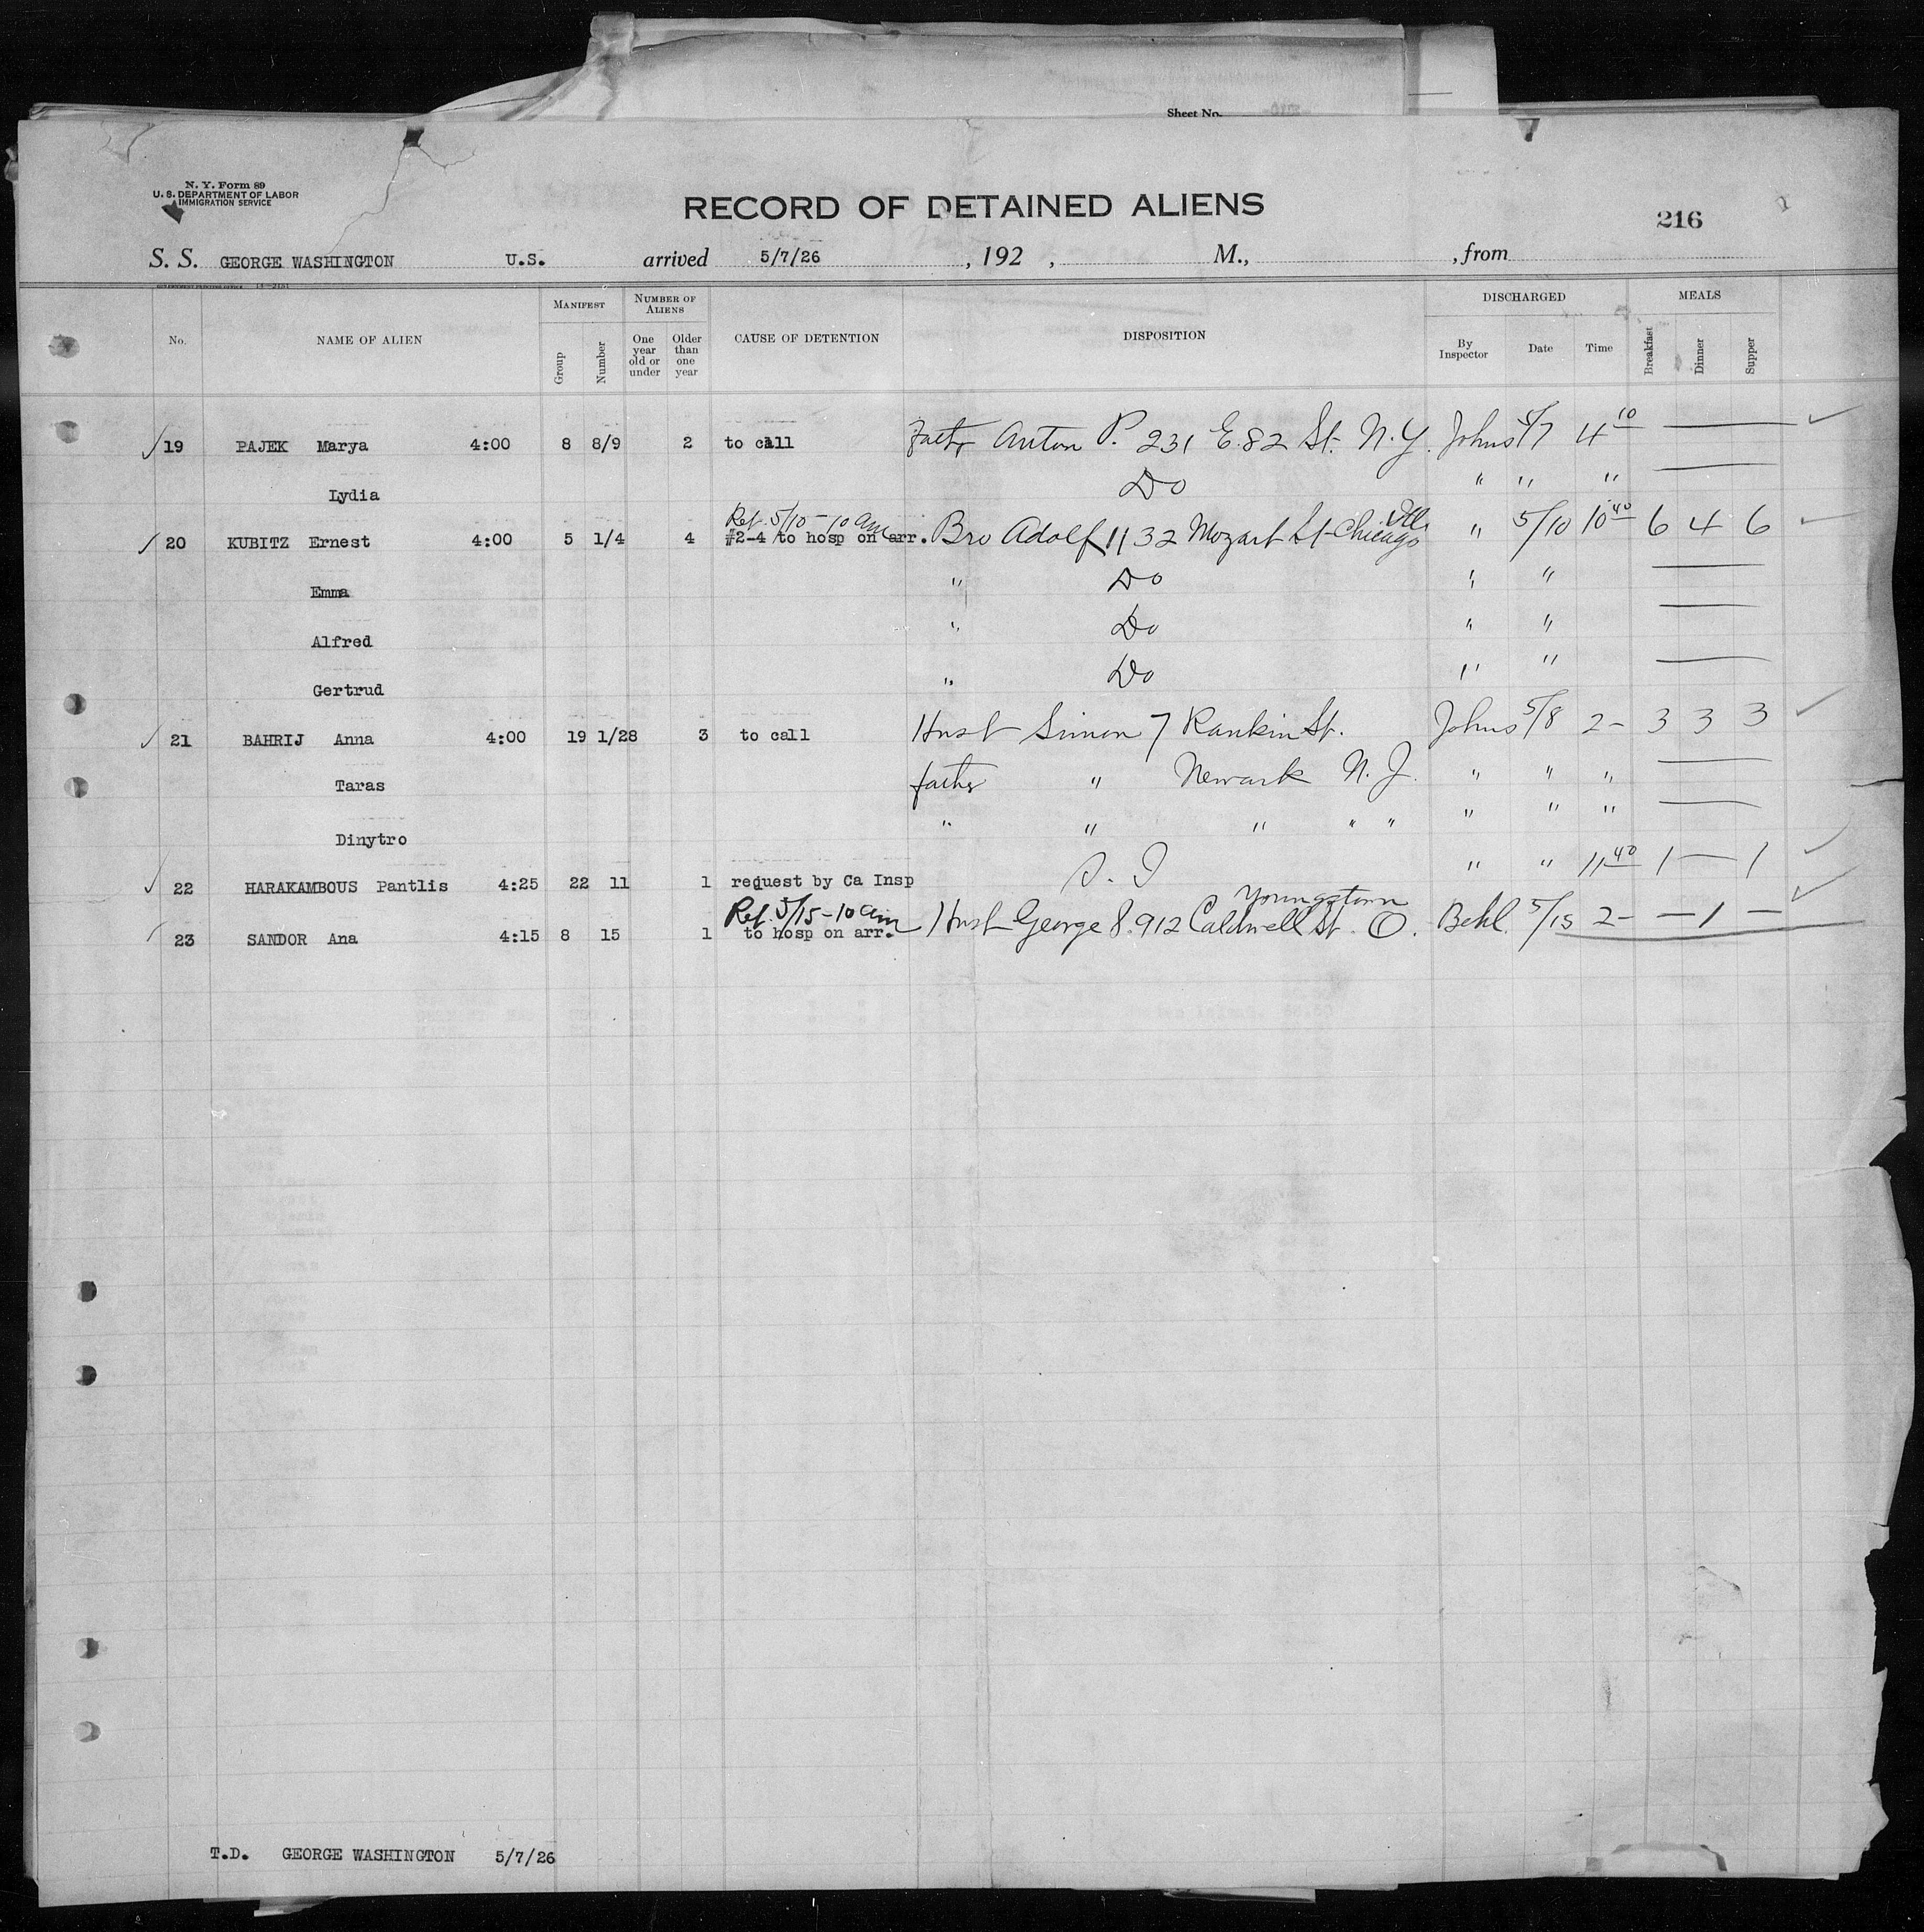 Sheet No.
N. Y. Form 89
U. S. DEPARTMENT OF LABOR
IMMIGRATION SERVICE
RECORD OF DETAINED ALIENS
216
S. S. GEORGE WASHINGTON U.S. arrived 5/7/26 , 192 , M., , from
MANIFEST NUMBER OF ALIENS DISCHARGED MEALS
No. NAME OF ALIEN Group Number One year old or under Older than one year CAUSE OF DETENTION DISPOSITION By Inspector Date Time Breakfast Dinner Supper
19 PAJEK Marya 4:00 8 8/9 2 to call Fathr Anton P. 231 E. 82 St. N.Y. Johns 5/7 4 10
Lydia Do " " "
Ref. 5/10 - 10 am Ill.
20 KUBITZ Ernest 4:00 5 1/4 4 #2-4 to hosp on arr. Bro Adolf 1132 Mozart St Chicago " 5/10 10 40 6 4 6
Emma " Do " "
Alfred " Do " "
Gertrud " Do " "
21 BAHRIJ Anna 4:00 19 1/28 3 to call Husb Simon 7 Rankin St. Johns 5/8 2- 3 3 3
Taras father " Newark N. J. " " "
Dinytro " " " " " " " "
22 HARAKAMBOUS Pantlis 4:25 22 11 1 request by Ca Insp S. I " " 11 40 1 — 1
Ref. 5/15 - 10 am Youngstown
23 SANDOR Ana 4:15 8 15 1 to hosp on arr. Husb George S. 912 Caldwell St. O. Behl. 5/15 2- — 1 —
T.D. GEORGE WASHINGTON 5/7/26